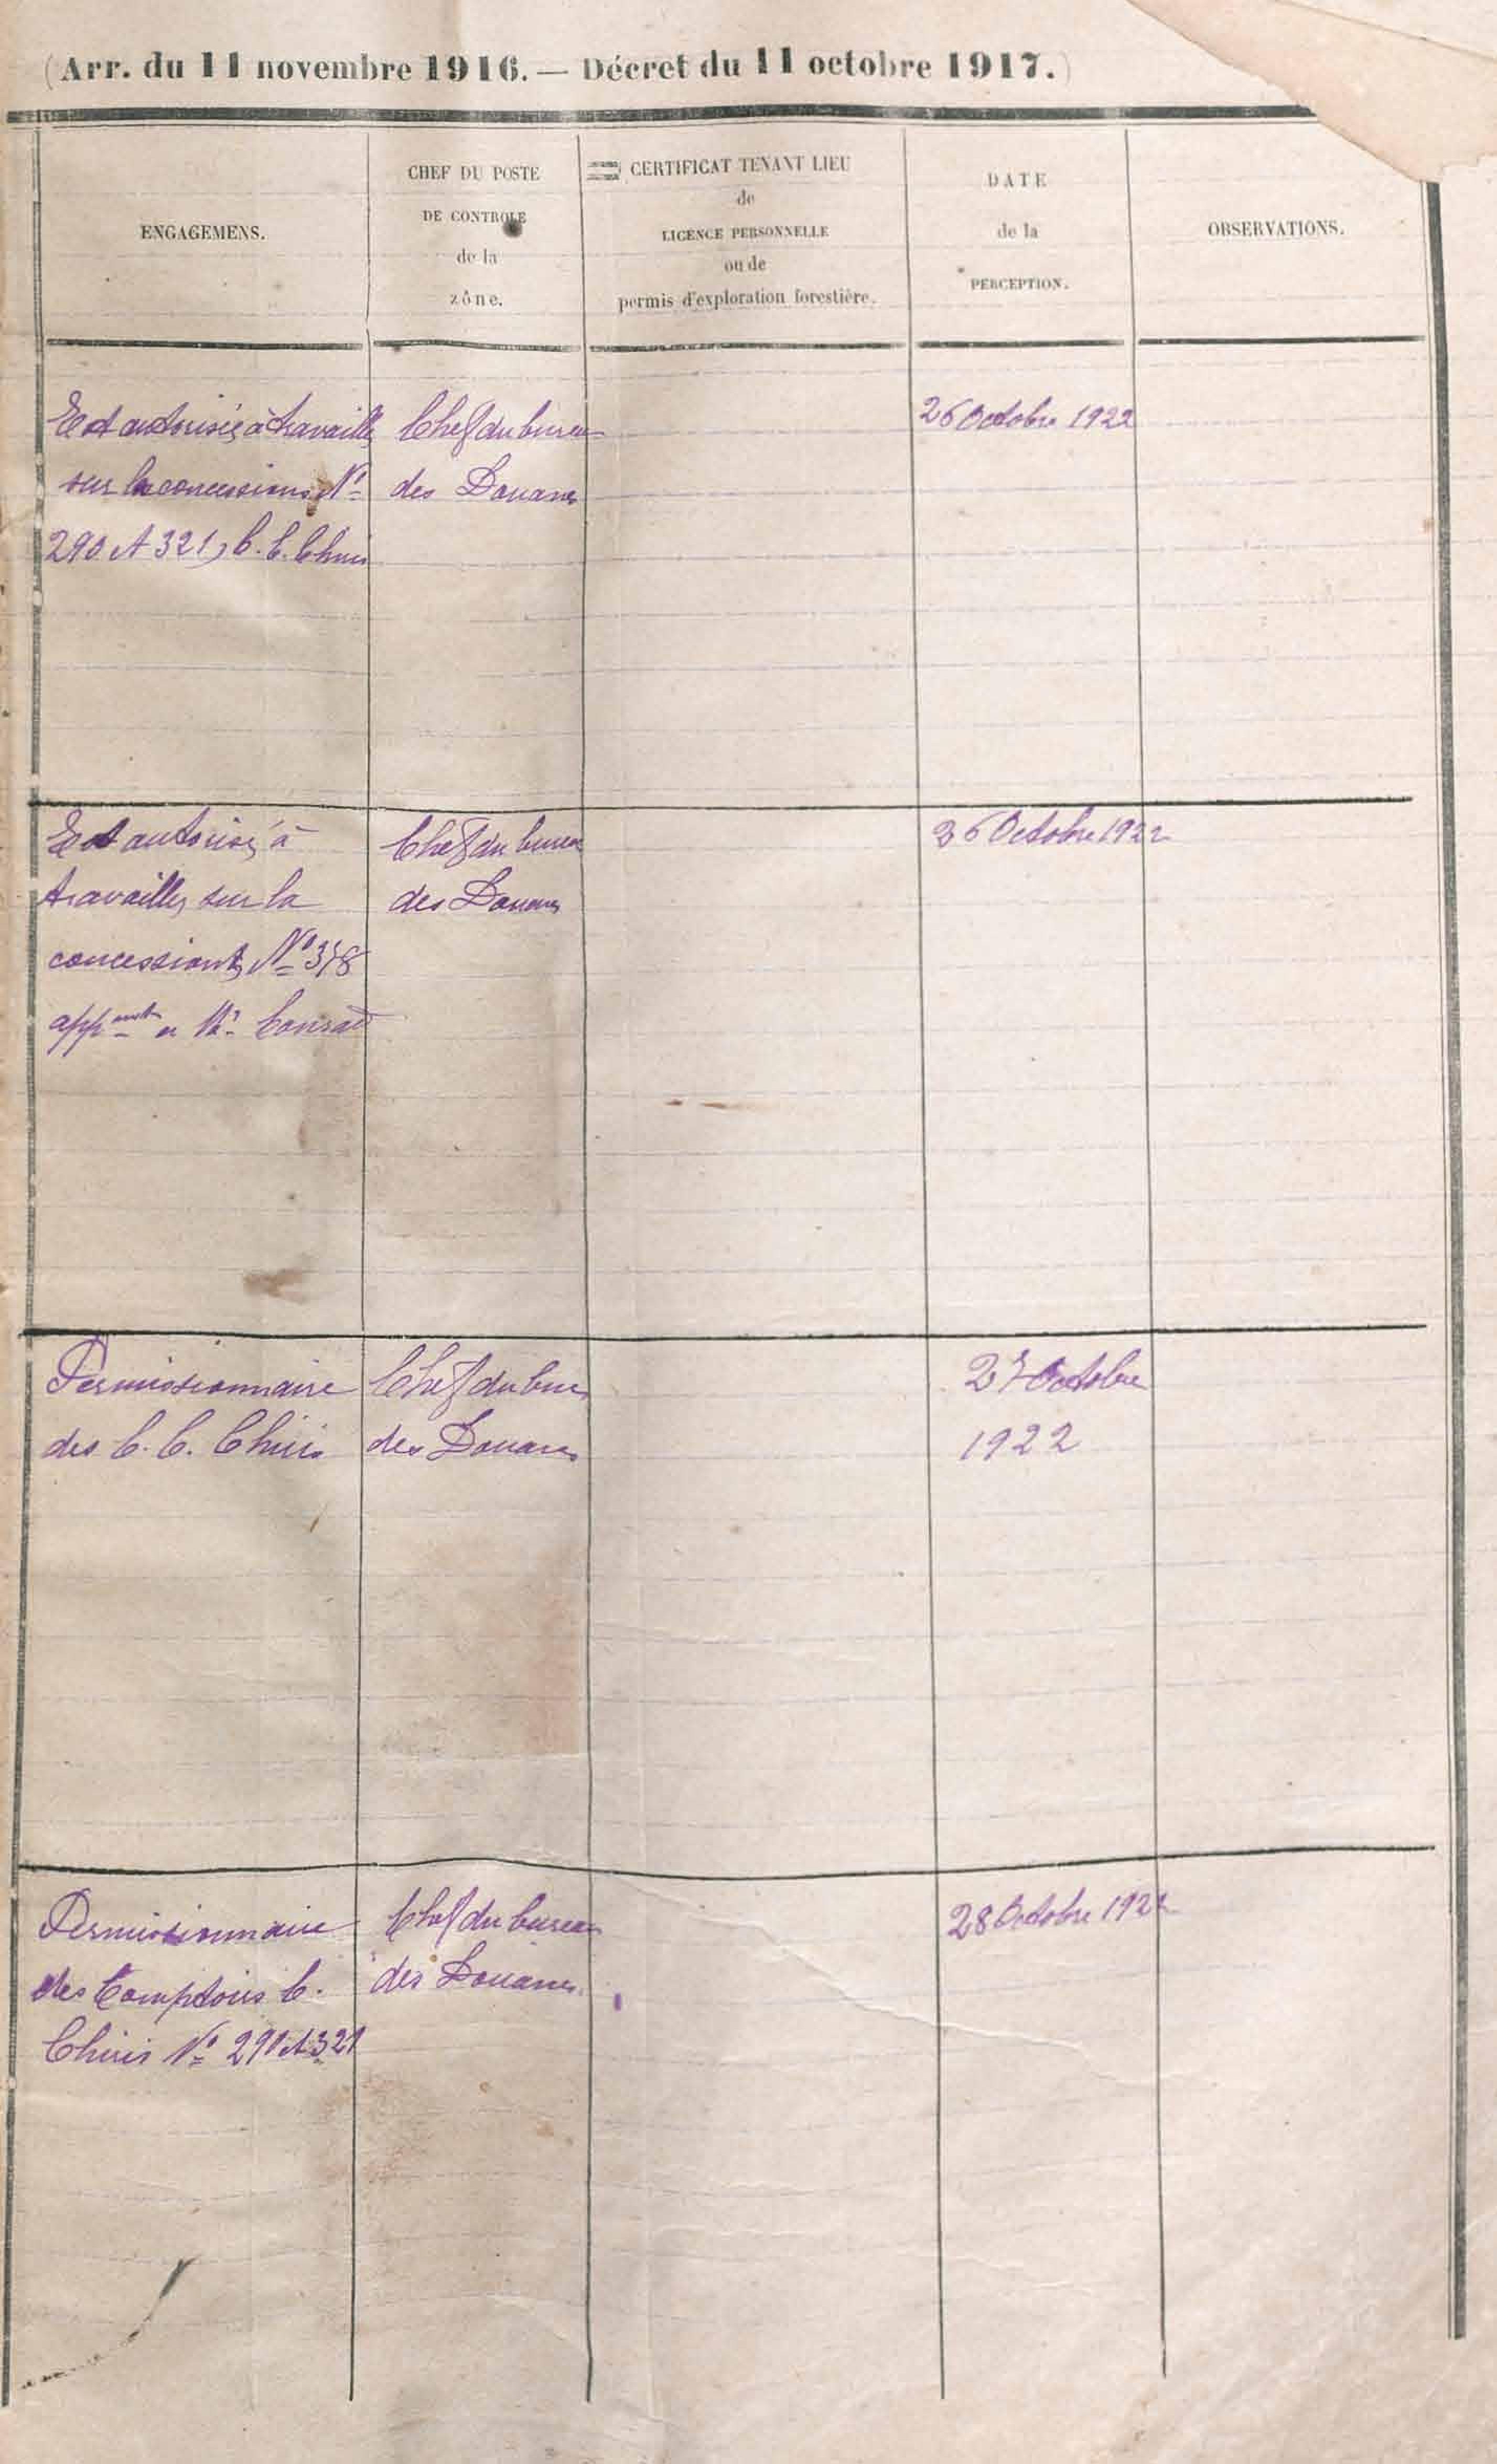 (Arr. du 11 novembre 1916. — Décret du 11 octobre 1917.)
ENGAGEMENS.
CHEF DU POSTE
DE CONTROLE
de la
zône.
CERTIFICAT TENANT LIEU
de
LICENCE PERSONNELLE
ou de
permis d'exploration forestière.
DATE
de la
PERCEPTION.
OBSERVATIONS.
Est autorisé à travailler
sur la concessions No
290 et 321, C. C. Chiris
Chef du bureau
des Douanes
26 Octobre 1922
Est autorisé à
travailler sur la
concession No 318
appant a Mr
Chef du bureau
des Douanes
26 Octobre 1922
Permissionnaire
des C. C. Chiris
Chef du bur
des Douanes
27 Octobre
1922
Permissionnaire
des Comptoirs C.
Chiris No 290 et 321
Chef du bureau
des Douanes
28 Octobre 1922